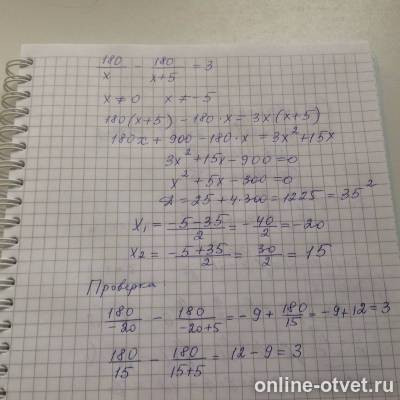 180/x - 180/(x+5) = 3
x ≠ 0   x ≠ -5
180(x+5) - 180·x = 3x(x+5)
180x + 900 - 180·x = 3x² + 15x
3x² + 15x - 900 = 0
x² + 5x - 300 = 0
D = 25 + 4·300 = 1225 = 35²
x₁ = (-5-35)/2 = -40/2 = -20
x₂ = (-5+35)/2 = 30/2 = 15
Проверка
180/-20 - 180/(-20+5) = -9 + 180/15 = -9+12 = 3
180/15 - 180/(15+5) = 12 - 9 = 3
online-otvet.ru